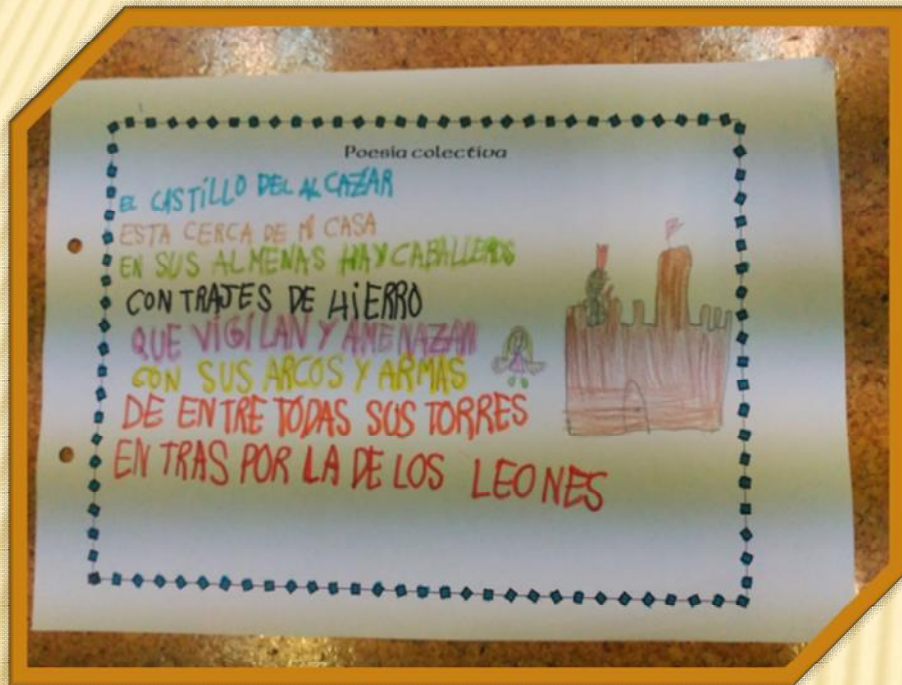 Poesía colectiva
EL CASTILLO DEL ALCAZAR
ESTA CERCA DE MI CASA
EN SUS ALMENAS HAY CABALLEROS
CON TRAJES DE HIERRO
QUE VIGILAN Y AMENAZAN
CON SUS ARCOS Y ARMAS
DE ENTRE TODAS SUS TORRES
ENTRAS POR LA DE LOS LEONES